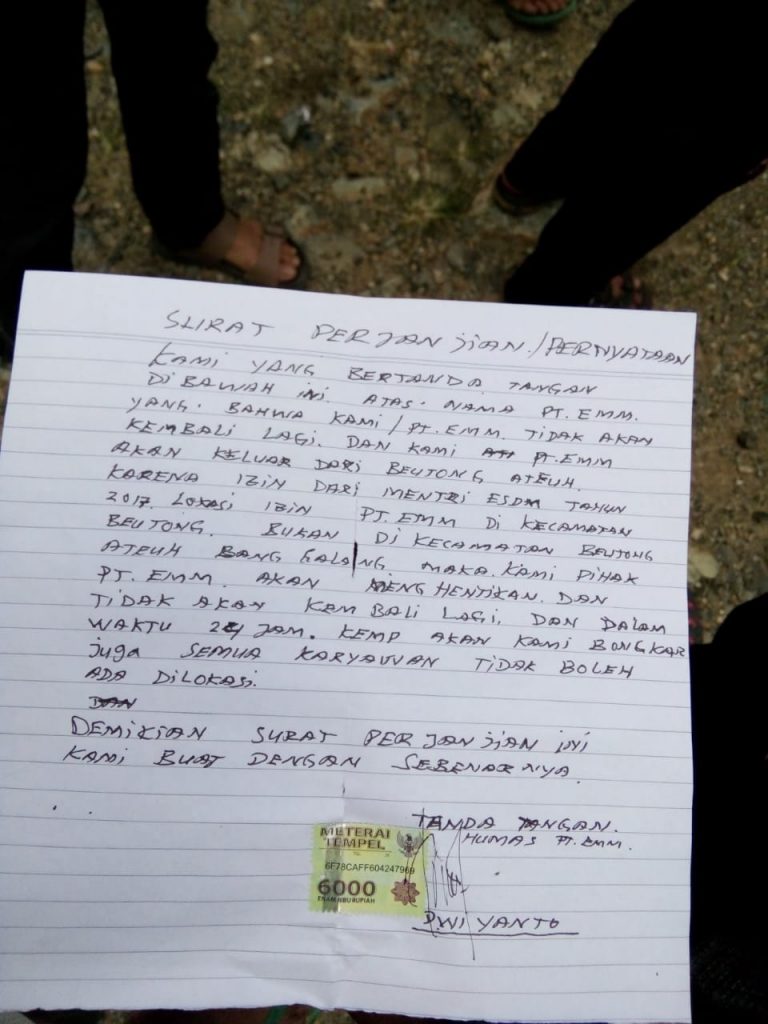 SURAT PERJANJIAN./PERNYATAAN
KAMI YANG BERTANDA TANGAN
DIBAWAH INI ATAS. NAMA PT. EMM.
YANG. BAHWA KAMI / PT. EMM. TIDAK AKAN
KEMBALI LAGI. DAN KAMI PT. EMM
AKAN KELUAR DARI BEUTONG ATEUH.
KARENA IZIN DARI MENTRI ESDM TAHUN
2017. LOKASI IZIN PT. EMM DI KECAMATAN
BEUTONG. BUKAN DI KECAMATAN BEUTONG
ATEUH BANG GALANG. MAKA. KAMI PIHAK
PT. EMM. AKAN MENGHENTIKAN. DAN
TIDAK AKAN KEMBALI LAGI. DAN DALAM
WAKTU 24 JAM. KEMP AKAN KAMI BONGKAR
JUGA SEMUA KARYAWAN TIDAK BOLEH
ADA DILOKASI.
DAN
DEMIKIAN SURAT PERJANJIAN INI
KAMI BUAT DENGAN SEBENARNYA.
TANDA TANGAN.
HUMAS PT. EMM.
METERAI
TEMPEL
6F78CAFF604247969
6000
ENAM RIBU RUPIAH
DWI YANTO